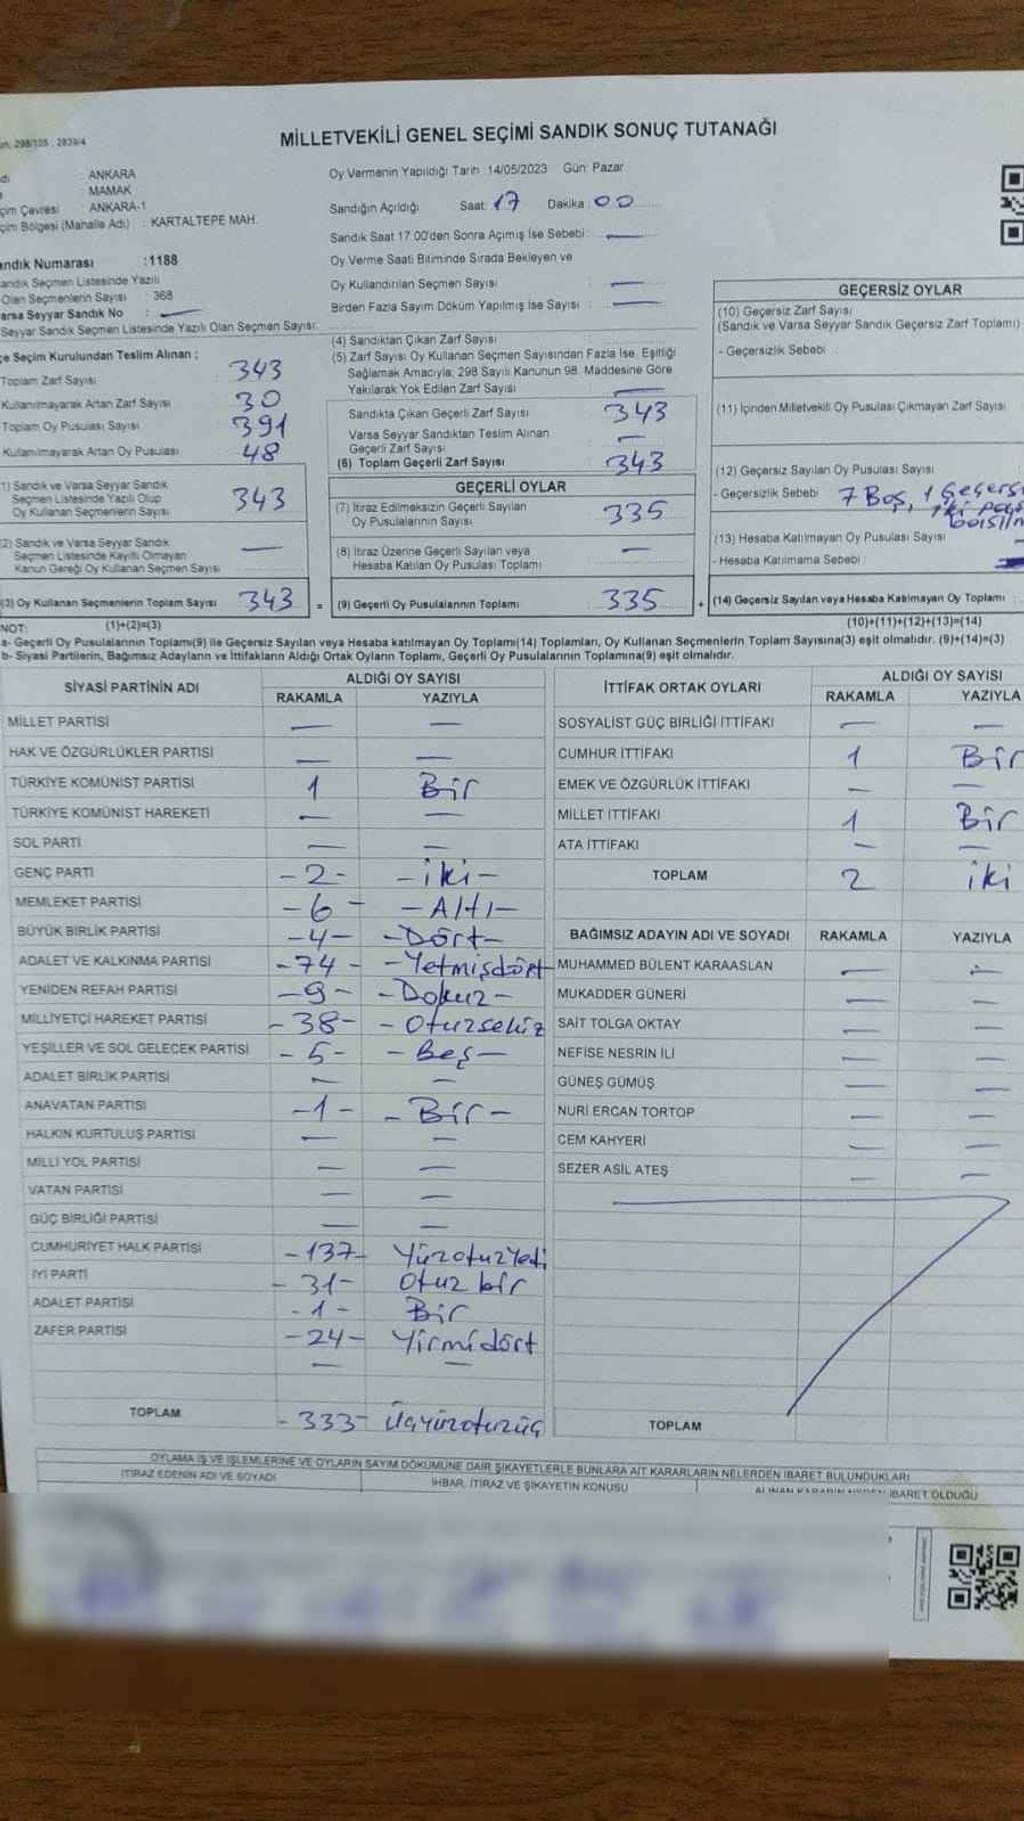 298/105 : 2839/4
MİLLETVEKİLİ GENEL SEÇİMİ SANDIK SONUÇ TUTANAĞI
ANKARA
MAMAK
çim Çevresi ANKARA-1
çim Bölgesi (Mahalle Adı) : KARTALTEPE MAH.
Oy Vermenin Yapıldığı Tarih :14/05/2023 Gün: Pazar
Sandığın Açıldığı Saat: 17 Dakika 00
Sandık Saat 17:00'den Sonra Açılmış İse Sebebi : —
Oy Verme Saati Bitiminde Sırada Bekleyen ve
Oy Kullandırılan Seçmen Sayısı : —
Birden Fazla Sayım Döküm Yapılmış İse Sayısı : —
andık Numarası :1188
andık Seçmen Listesinde Yazılı
Olan Seçmenlerin Sayısı : 368
arsa Seyyar Sandık No : —
Seyyar Sandık Seçmen Listesinde Yazılı Olan Seçmen Sayısı:
çe Seçim Kurulundan Teslim Alınan ;
Toplam Zarf Sayısı : 343
Kullanılmayarak Artan Zarf Sayısı 30
Toplam Oy Pusulası Sayısı 391
Kullanılmayarak Artan Oy Pusulası 48
1) Sandık ve Varsa Seyyar Sandık
Seçmen Listesinde Yazılı Olup
Oy Kullanan Seçmenlerin Sayısı 343
2) Sandık ve Varsa Seyyar Sandık
Seçmen Listesinde Kayıtlı Olmayan
Kanun Gereği Oy Kullanan Seçmen Sayısı —
(3) Oy Kullanan Seçmenlerin Toplam Sayısı 343 =
(4) Sandıktan Çıkan Zarf Sayısı
(5) Zarf Sayısı Oy Kullanan Seçmen Sayısından Fazla İse, Eşitliği
Sağlamak Amacıyla, 298 Sayılı Kanunun 98. Maddesine Göre
Yakılarak Yok Edilen Zarf Sayısı —
Sandıkta Çıkan Geçerli Zarf Sayısı 343
Varsa Seyyar Sandıktan Teslim Alınan
Geçerli Zarf Sayısı —
(6) Toplam Geçerli Zarf Sayısı 343
GEÇERLİ OYLAR
(7) İtiraz Edilmeksizin Geçerli Sayılan
Oy Pusulalarının Sayısı 335
(8) İtiraz Üzerine Geçerli Sayılan veya
Hesaba Katılan Oy Pusulası Toplamı —
(9) Geçerli Oy Pusulalarının Toplamı : 335 +
GEÇERSİZ OYLAR
(10) Geçersiz Zarf Sayısı
(Sandık ve Varsa Seyyar Sandık Geçersiz Zarf Toplamı)
- Geçersizlik Sebebi :
(11) İçinden Milletvekili Oy Pusulası Çıkmayan Zarf Sayısı
(12) Geçersiz Sayılan Oy Pusulası Sayısı
- Geçersizlik Sebebi 7 Boş, 1
iki
(13) Hesaba Katılmayan Oy Pusulası Sayısı
- Hesaba Katılmama Sebebi :
(14) Geçersiz Sayılan veya Hesaba Katılmayan Oy Toplamı :
NOT: (1)+(2)=(3) (10)+(11)+(12)+(13)=(14)
a- Geçerli Oy Pusulalarının Toplamı(9) ile Geçersiz Sayılan veya Hesaba katılmayan Oy Toplamı(14) Toplamları, Oy Kullanan Seçmenlerin Toplam Sayısına(3) eşit olmalıdır. (9)+(14)=(3)
b- Siyasi Partilerin, Bağımsız Adayların ve İttifakların Aldığı Ortak Oyların Toplamı, Geçerli Oy Pusulalarının Toplamına(9) eşit olmalıdır.
SİYASİ PARTİNİN ADI ALDIĞI OY SAYISI
RAKAMLA YAZIYLA
MİLLET PARTİSİ — —
HAK VE ÖZGÜRLÜKLER PARTİSİ — —
TÜRKİYE KOMÜNİST PARTİSİ 1 Bir
TÜRKİYE KOMÜNİST HAREKETİ — —
SOL PARTİ — —
GENÇ PARTİ -2- -iki-
MEMLEKET PARTİSİ -6- -Altı-
BÜYÜK BİRLİK PARTİSİ -4- -Dört-
ADALET VE KALKINMA PARTİSİ -74- -Yetmişdört
YENİDEN REFAH PARTİSİ -9- -Dokuz-
MİLLİYETÇİ HAREKET PARTİSİ -38- -Otuzsekiz
YEŞİLLER VE SOL GELECEK PARTİSİ -5- -Beş-
ADALET BİRLİK PARTİSİ — —
ANAVATAN PARTİSİ -1- -Bir-
HALKIN KURTULUŞ PARTİSİ — —
MİLLİ YOL PARTİSİ — —
VATAN PARTİSİ — —
GÜÇ BİRLİĞİ PARTİSİ — —
CUMHURİYET HALK PARTİSİ -137- Yüzotuzyedi
İYİ PARTİ -31- Otuz bir
ADALET PARTİSİ -1- Bir
ZAFER PARTİSİ -24- Yirmidört
— —
TOPLAM -333- Üçyüzotuzüç
İTTİFAK ORTAK OYLARI ALDIĞI OY SAYISI
RAKAMLA YAZIYLA
SOSYALİST GÜÇ BİRLİĞİ İTTİFAKI — —
CUMHUR İTTİFAKI 1 Bir
EMEK VE ÖZGÜRLÜK İTTİFAKI — —
MİLLET İTTİFAKI 1 Bir
ATA İTTİFAKI — —
TOPLAM 2 iki
BAĞIMSIZ ADAYIN ADI VE SOYADI RAKAMLA YAZIYLA
MUHAMMED BÜLENT KARAASLAN — —
MUKADDER GÜNERİ — —
SAİT TOLGA OKTAY — —
NEFİSE NESRİN İLİ — —
GÜNEŞ GÜMÜŞ — —
NURİ ERCAN TORTOP — —
CEM KAHYERİ — —
SEZER ASİL ATEŞ — —
TOPLAM
OYLAMA İŞ VE İŞLEMLERİNE VE OYLARIN SAYIM DÖKÜMÜNE DAİR ŞİKAYETLERLE BUNLARA AİT KARARLARIN NELERDEN İBARET BULUNDUKLARI
İTİRAZ EDENİN ADI VE SOYADI İHBAR, İTİRAZ VE ŞİKAYETİN KONUSU ALINAN KARARIN NEDEN İBARET OLDUĞU